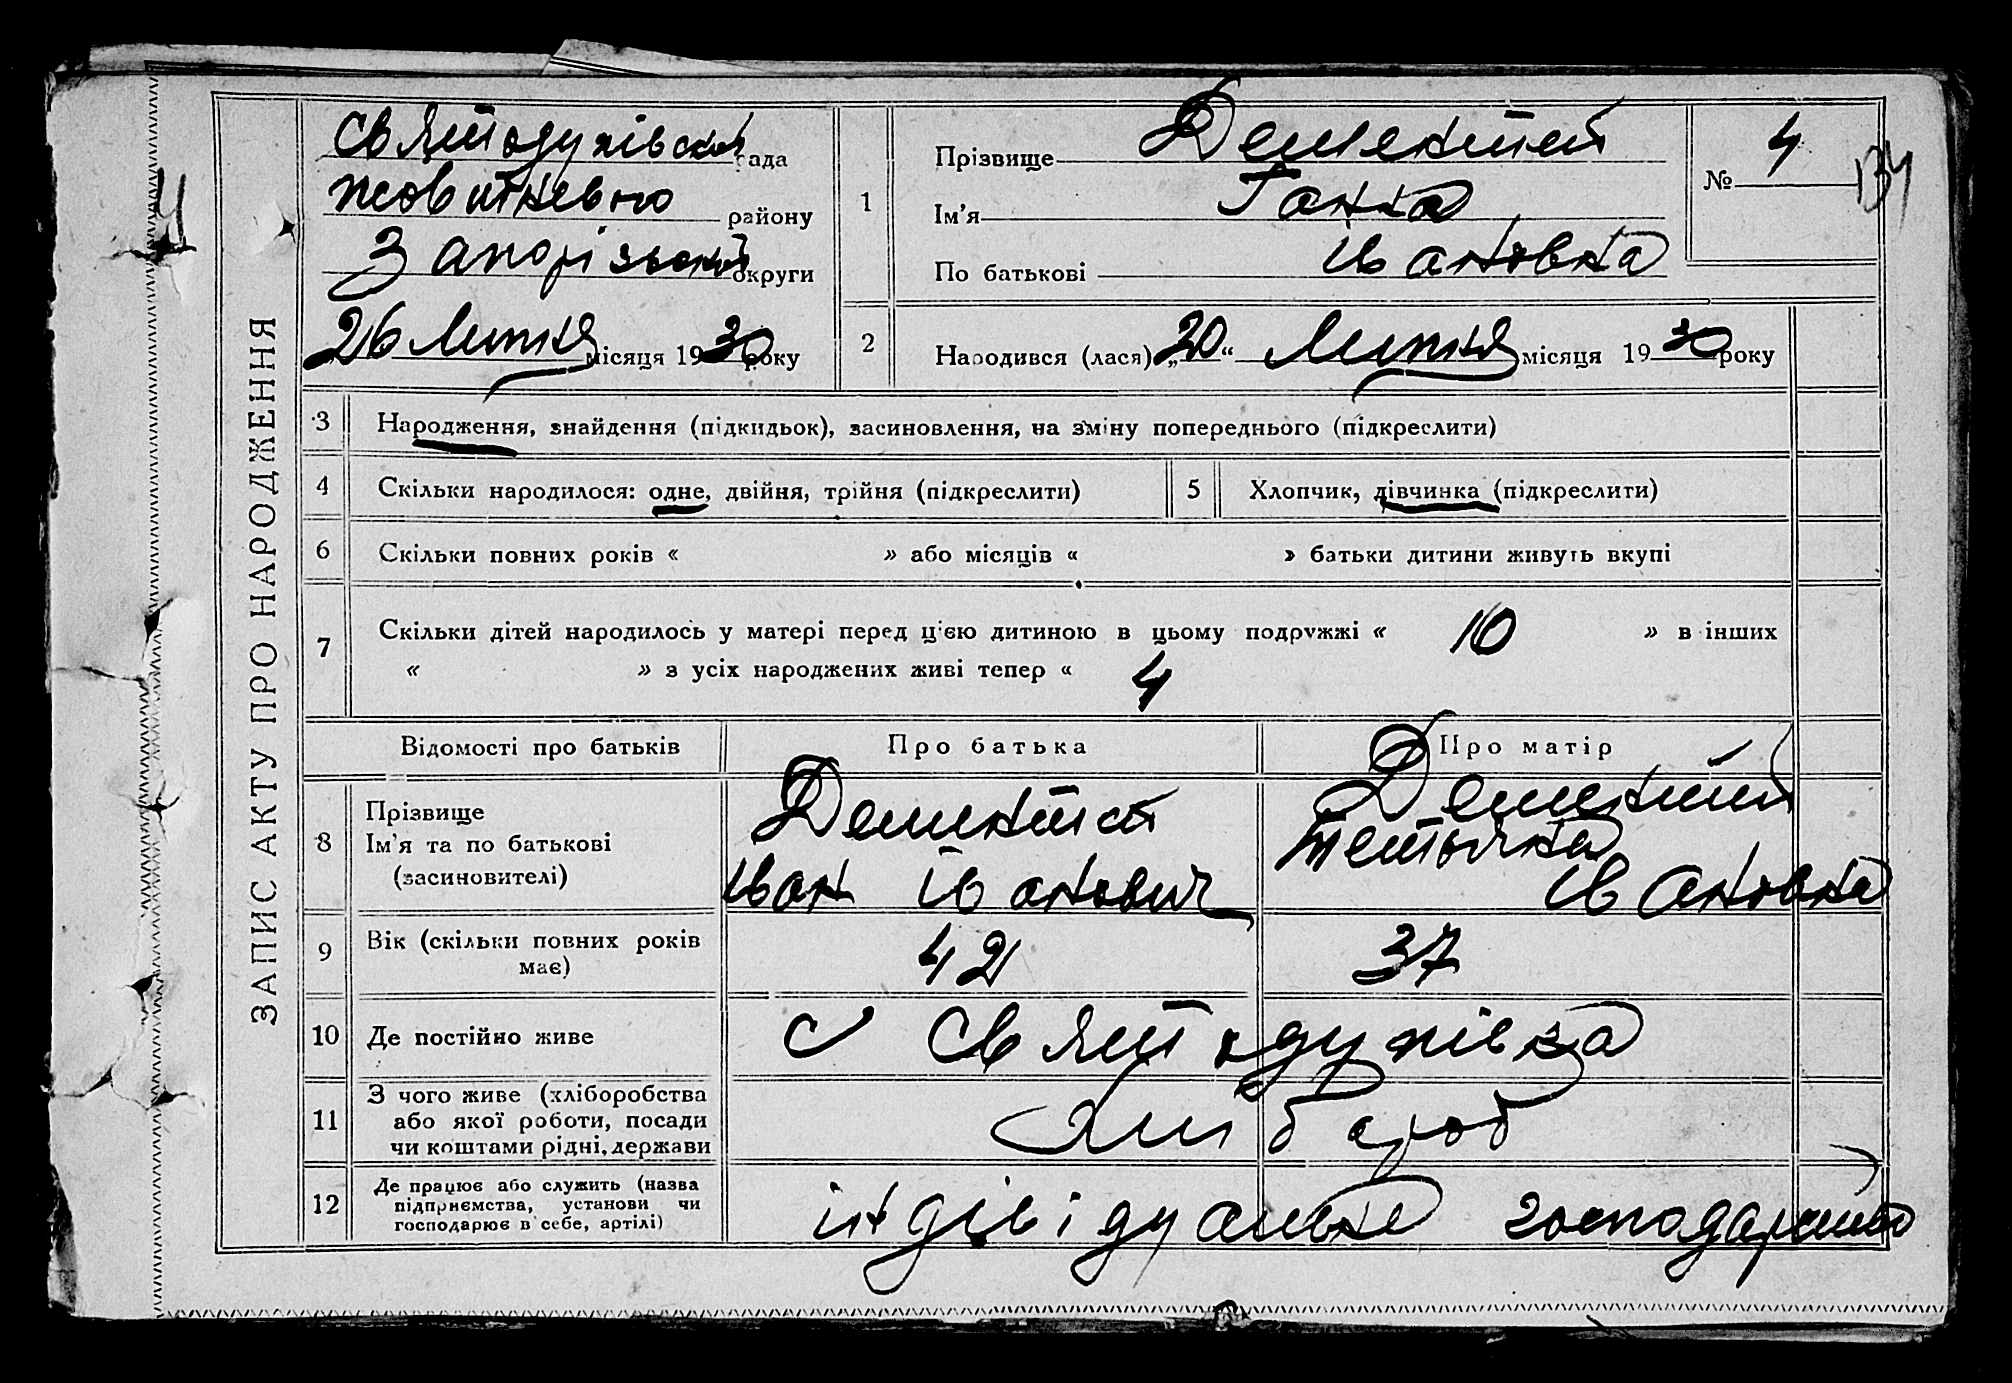 ЗАПИС АКТУ ПРО НАРОДЖЕННЯ
Святодухівської рада
Жовтневого району
Запорізької округи
26 Липня місяця 1930 року
1
Прізвище
Ім’я Ганна
По батькові Івановна
№ 4
134
4
2
Народився (лася) „20“ Липня місяця 1930 року
3 Народження, знайдення (підкидьок), засиновлення, на зміну попереднього (підкреслити)
4 Скільки народилося: одне, двійня, трійня (підкреслити)
5 Хлопчик, дівчинка (підкреслити)
6 Скільки повних років « » або місяців « » батьки дитини живуть вкупі
7 Скільки дітей народилось у матері перед цією дитиною в цьому подружжі « 10 » в інших
« » з усіх народжених живі тепер « 4
Відомості про батьків Про батька Про матір
8 Прізвище
Ім’я та по батькові
(засиновителі)
Іван Іванович
Івановна
9 Вік (скільки повних років
має)
42 37
10 Де постійно живе с Святодухівка
11 З чого живе (хліборобства
або якої роботи, посади
чи коштами рідні, держави
Хлібороб
12 Де працює або служить (назва
підприємства, установи чи
господарює в себе, артілі)
індівідуальне господарство